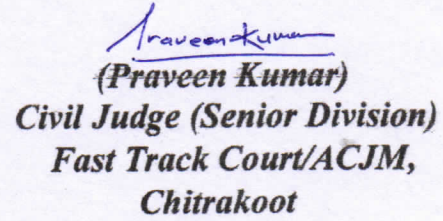 Praveenkumar
(Praveen Kumar)
Civil Judge (Senior Division)
Fast Track Court/ACJM,
Chitrakoot